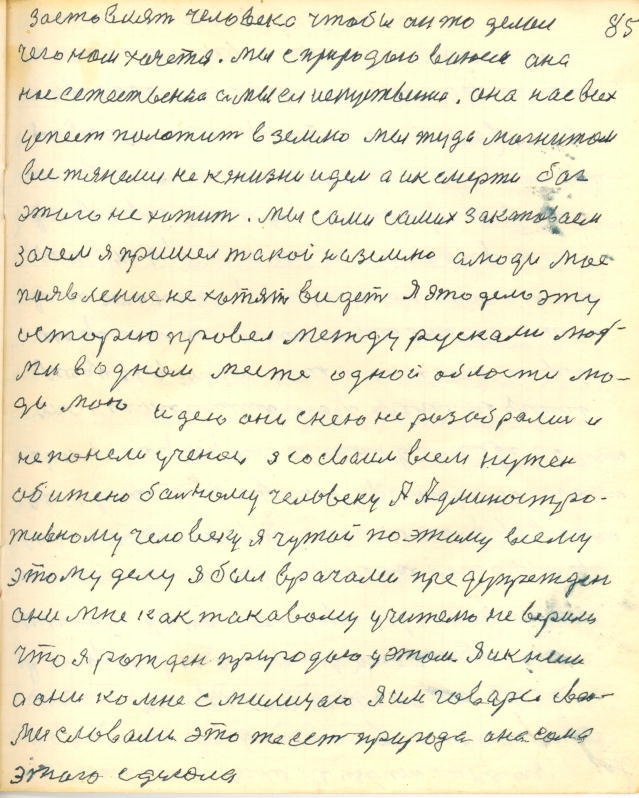 застовият человека чтобы он то делал 85
чего нам хочетя. мы с природою воюем она
нас естественна а мы ей искуствено. она нас всех
успеет положит в землю мы туда магнитом
все тянеми не к жизни идем а ик смерти бог
этого не хотит. мы сами самих закаповаем
зачем я пришел такой на землю а люди мое
появление не хотят видет Я это дело эту
осторию провел между русками люд-
ми в одном месте одной области лю-
ди мою идею они снею не розобрались и
не понели ученои я со своим всем нужен
обижено болному человеку А Админостро-
тивному человеку я чужой поэтому всему
этому делу я был врачами предупрежден
они мне как такавому учителю не верили
что я рожден природою у этом. Я ик ним
а они ко мне с милицаю Я им говарю
ми словами это же ест природа она сама
этого сделола